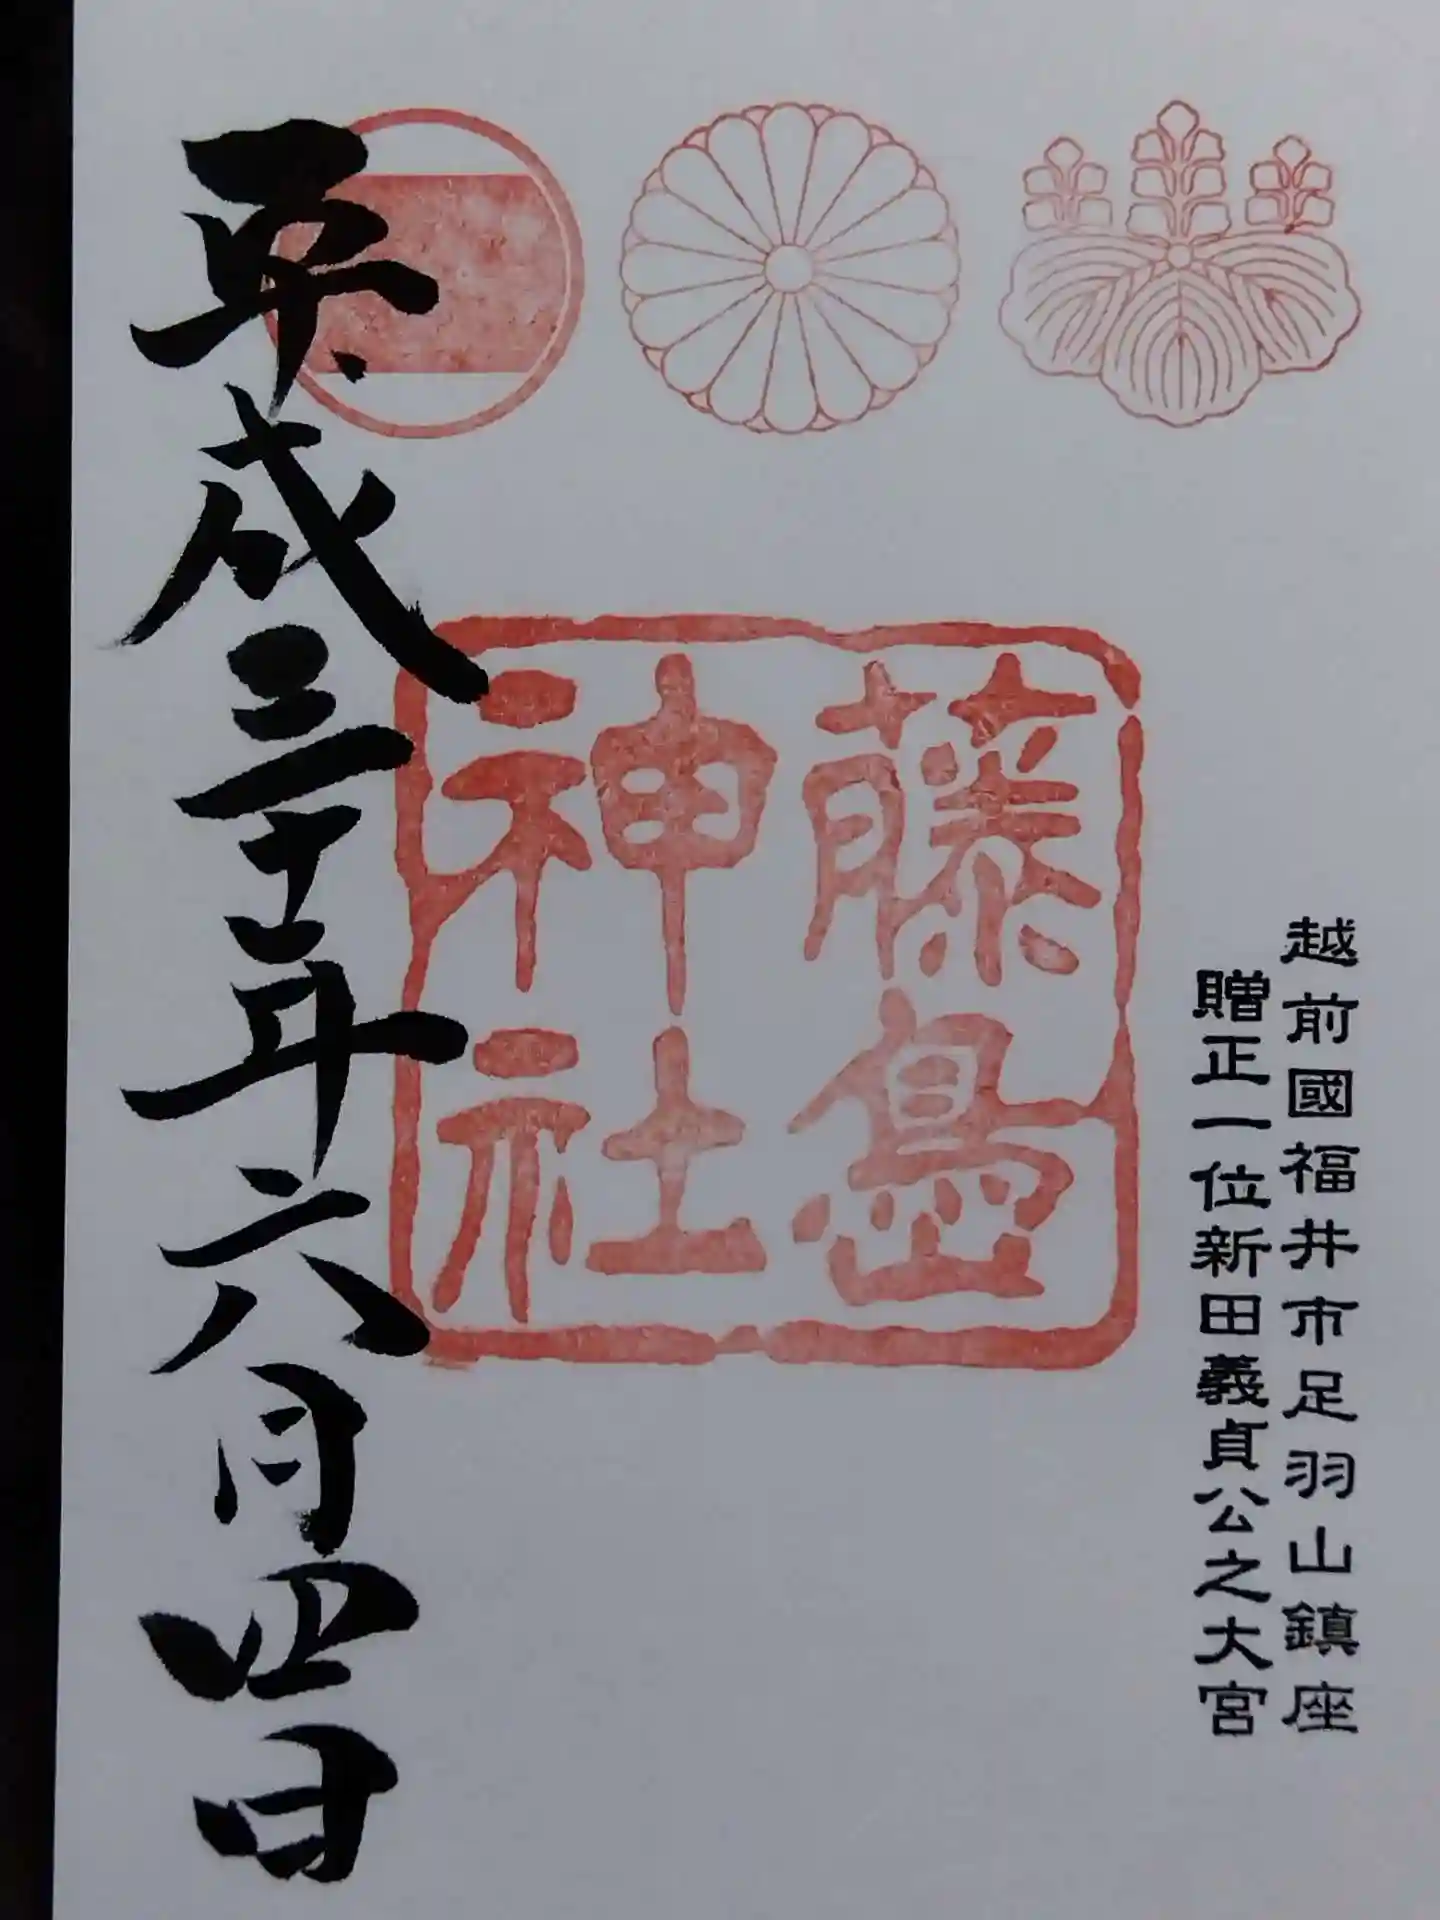 越前國福井市足羽山鎮座
贈正一位新田義貞公之大宮
藤島
神社
平成三十年六月四日